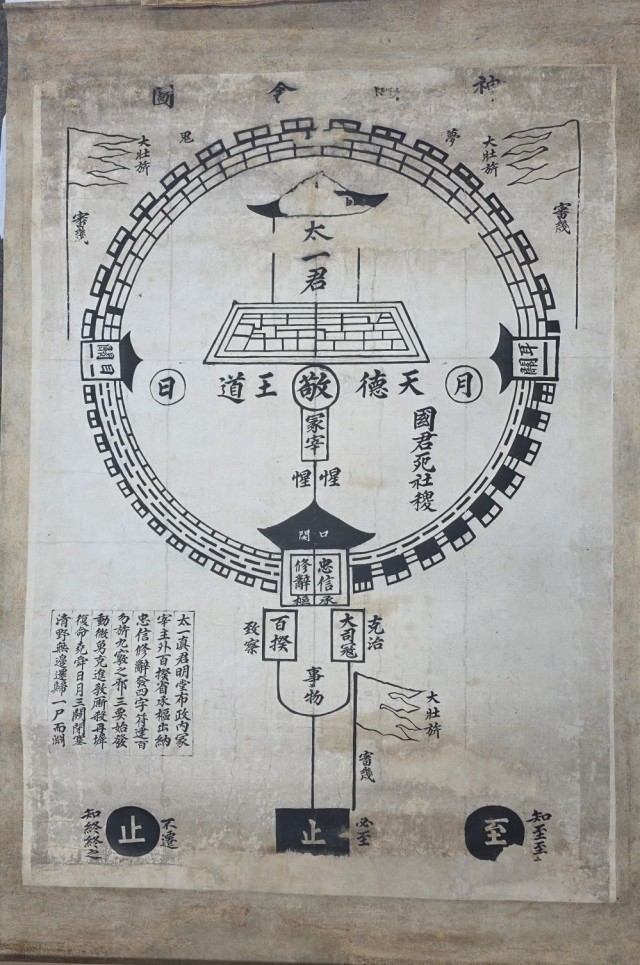 神 舍 圖
夢 鬼
大壯旂
審幾
大壯旂
審幾
太一君
耳關
目關
月
天德
敬
王道
日
冢宰
惺惺
國君死社稷
口關
忠信
修辭
承樞
大司寇
克治
百揆
致察
事物
大壯旂
審幾
太一真君明堂布政內冢
宰主外百揆省承樞出納
忠信修辭發四字符建百
勿旂九竅之邪三要始發
動微勇克進教廝殺丹墀
復命堯舜日月三關閉塞
清野無邊還歸一尸而淵
知至至之
至
必至
止
不遷
止
知終終之